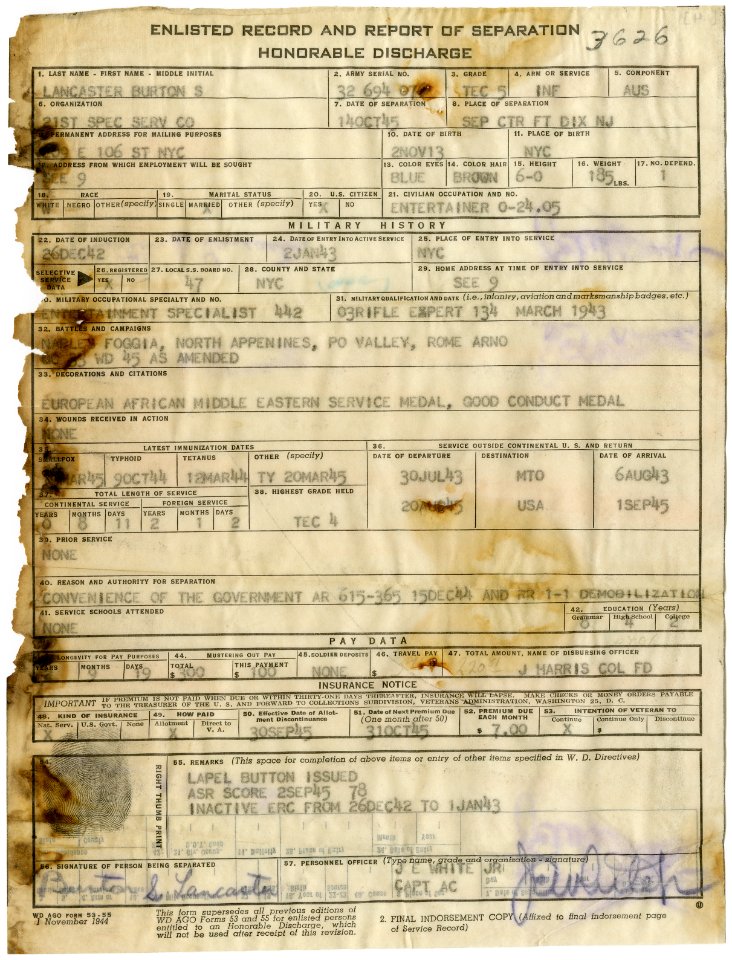 ENLISTED RECORD AND REPORT OF SEPARATION
HONORABLE DISCHARGE
3626
1. LAST NAME - FIRST NAME - MIDDLE INITIAL 2. ARMY SERIAL NO. 3. GRADE 4. ARM OR SERVICE 5. COMPONENT
LANCASTER BURTON S 32 694 TEC 5 INF AUS
6. ORGANIZATION 7. DATE OF SEPARATION 8. PLACE OF SEPARATION
21ST SPEC SERV CO 14OCT45 SEP CTR FT DIX NJ
PERMANENT ADDRESS FOR MAILING PURPOSES 10. DATE OF BIRTH 11. PLACE OF BIRTH
E 106 ST NYC 2NOV13 NYC
ADDRESS FROM WHICH EMPLOYMENT WILL BE SOUGHT 13. COLOR EYES 14. COLOR HAIR 15. HEIGHT 16. WEIGHT 17. NO. DEPEND.
SEE 9 BLUE BROWN 6-0 185 LBS. 1
18. RACE 19. MARITAL STATUS 20. U.S. CITIZEN 21. CIVILIAN OCCUPATION AND NO.
WHITE NEGRO OTHER (specify) SINGLE MARRIED OTHER (specify) YES NO
X X ENTERTAINER 0-24.05
MILITARY HISTORY
22. DATE OF INDUCTION 23. DATE OF ENLISTMENT 24. DATE OF ENTRY INTO ACTIVE SERVICE 25. PLACE OF ENTRY INTO SERVICE
26DEC42 2JAN43 NYC
SELECTIVE SERVICE DATA 26. REGISTERED YES NO 27. LOCAL S.S. BOARD NO. 28. COUNTY AND STATE 29. HOME ADDRESS AT TIME OF ENTRY INTO SERVICE
47 NYC SEE 9
30. MILITARY OCCUPATIONAL SPECIALTY AND NO. 31. MILITARY QUALIFICATION AND DATE (i.e., infantry, aviation and marksmanship badges, etc.)
ENTERTAINMENT SPECIALIST 442 03RIFLE EXPERT 134 MARCH 1943
32. BATTLES AND CAMPAIGNS
NAPLES FOGGIA, NORTH APPENINES, PO VALLEY, ROME ARNO
WD 45 AS AMENDED
33. DECORATIONS AND CITATIONS
EUROPEAN AFRICAN MIDDLE EASTERN SERVICE MEDAL, GOOD CONDUCT MEDAL
34. WOUNDS RECEIVED IN ACTION
NONE
35. LATEST IMMUNIZATION DATES 36. SERVICE OUTSIDE CONTINENTAL U. S. AND RETURN
SMALLPOX TYPHOID TETANUS OTHER (specify) DATE OF DEPARTURE DESTINATION DATE OF ARRIVAL
MAR45 9OCT44 12MAR44 TY 20MAR45 30JUL43 MTO 6AUG43
37. TOTAL LENGTH OF SERVICE 38. HIGHEST GRADE HELD
CONTINENTAL SERVICE FOREIGN SERVICE 20AUG45 USA 1SEP45
YEARS MONTHS DAYS YEARS MONTHS DAYS
0 8 11 2 1 2 TEC 4
39. PRIOR SERVICE
NONE
40. REASON AND AUTHORITY FOR SEPARATION
CONVENIENCE OF THE GOVERNMENT AR 615-365 15DEC44 AND RR 1-1 DEMOBILIZATION
41. SERVICE SCHOOLS ATTENDED 42. EDUCATION (Years)
NONE Grammar High School College
8 4 2
PAY DATA
LONGEVITY FOR PAY PURPOSES 44. MUSTERING OUT PAY 45. SOLDIER DEPOSITS 46. TRAVEL PAY 47. TOTAL AMOUNT, NAME OF DISBURSING OFFICER
YEARS MONTHS DAYS TOTAL THIS PAYMENT
9 19 $ 300 $ 100 NONE $ J HARRIS COL FD
INSURANCE NOTICE
IMPORTANT IF PREMIUM IS NOT PAID WHEN DUE OR WITHIN THIRTY-ONE DAYS THEREAFTER, INSURANCE WILL LAPSE. MAKE CHECKS OR MONEY ORDERS PAYABLE
TO THE TREASURER OF THE U. S. AND FORWARD TO COLLECTIONS SUBDIVISION, VETERANS ADMINISTRATION, WASHINGTON 25, D. C.
48. KIND OF INSURANCE 49. HOW PAID 50. Effective Date of Allotment Discontinuance 51. Date of Next Premium Due (One month after 50) 52. PREMIUM DUE EACH MONTH 53. INTENTION OF VETERAN TO
Nat. Serv. U.S. Govt. None Allotment Direct to V. A. Continue Continue Only Discontinue
X X 30SEP45 31OCT45 $ 7.00 X
RIGHT THUMB PRINT
55. REMARKS (This space for completion of above items or entry of other items specified in W. D. Directives)
LAPEL BUTTON ISSUED
ASR SCORE 2SEP45 78
INACTIVE ERC FROM 26DEC42 TO 1JAN43
56. SIGNATURE OF PERSON BEING SEPARATED 57. PERSONNEL OFFICER (Type name, grade and organization - signature)
Burton S. Lancaster J E WHITE JR
CAPT AC
WD AGO FORM 53-55
1 November 1944
This form supersedes all previous editions of
WD AGO Forms 53 and 55 for enlisted persons
entitled to an Honorable Discharge, which
will not be used after receipt of this revision.
2. FINAL INDORSEMENT COPY (Affixed to final indorsement page
of Service Record)